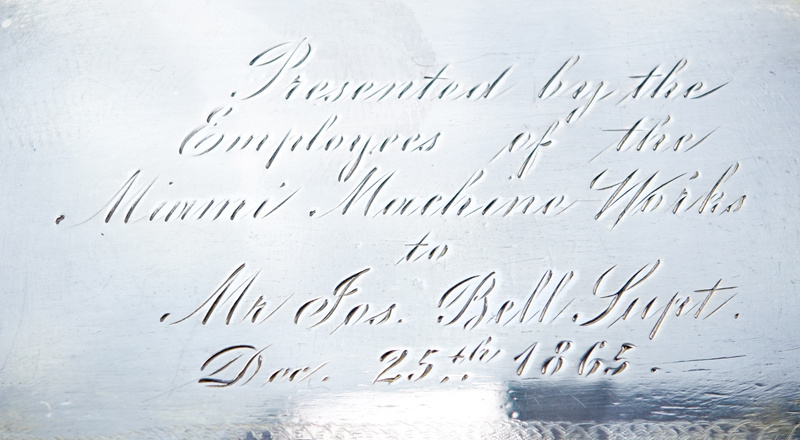 Presented by the
Employees of the
Miami Machine Works
to
Mr Jos. Bell. Supt.
Dec. 25th 1865.